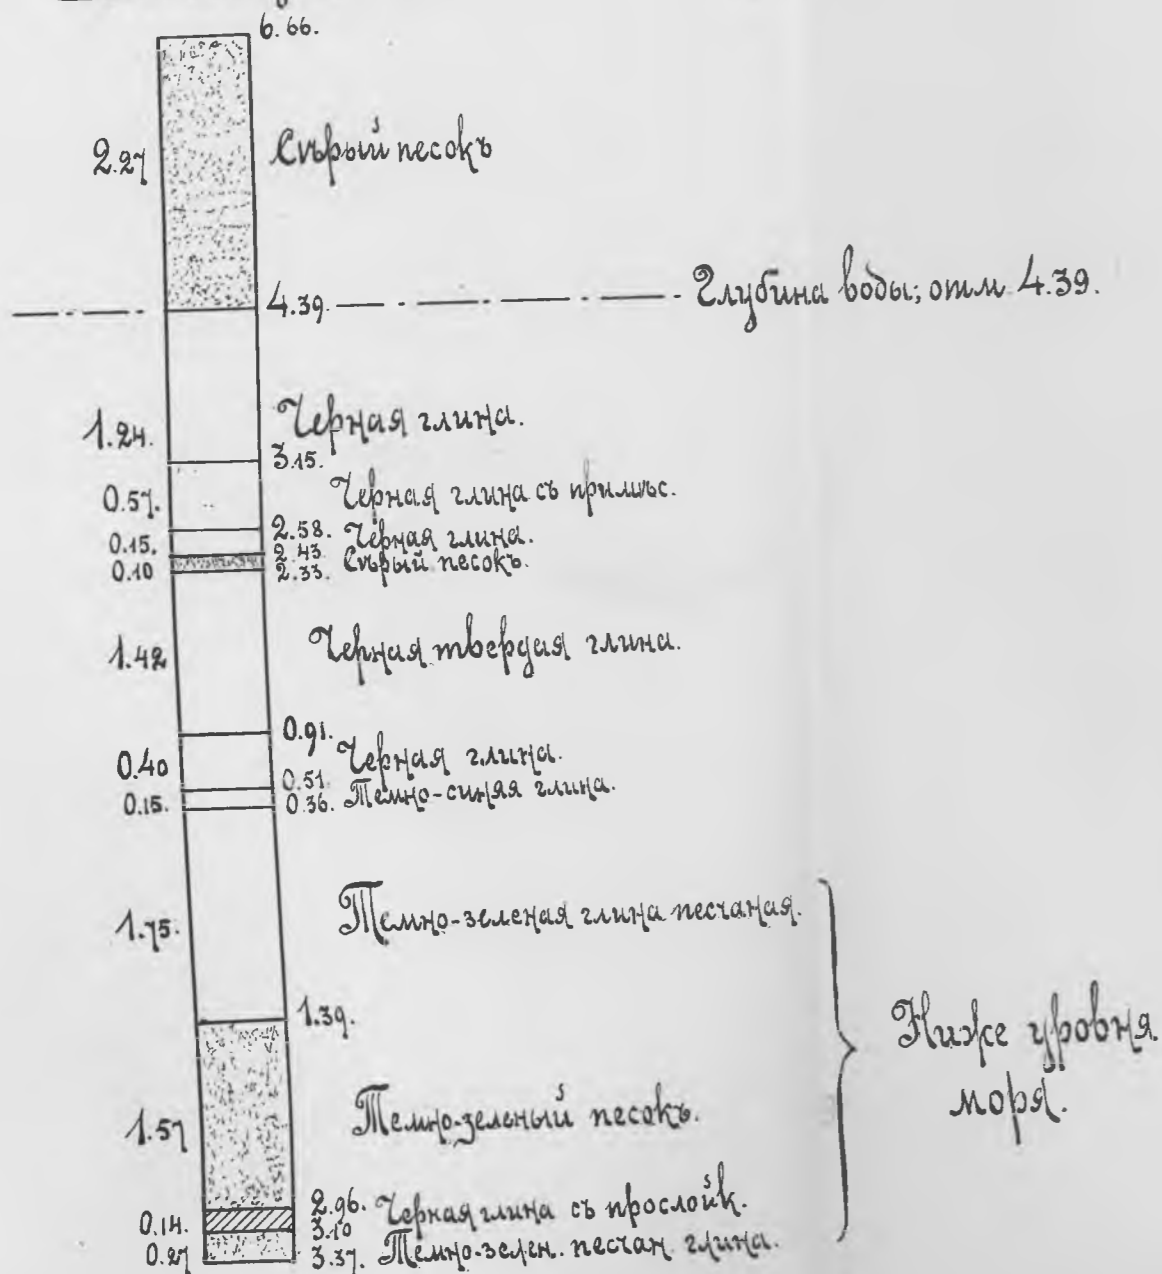 6.66.
2.27 Сѣрый песокъ
4.39. Глубина воды; отм 4.39.
1.24. Черная глина.
3.15.
0.57. Черная глина съ примѣс.
2.58. Черная глина.
0.15. 2.43.
0.10 2.33. Сѣрый песокъ.
1.42 Черная твердая глина.
0.91.
0.40 Черная глина.
0.51.
0.15. 0.36. Темно-синяя глина.
1.75. Темно-зеленая глина песчаная.
1.39.
Ниже уровня
моря.
1.57 Темно-зеленый песокъ.
2.96. Черная глина съ прослойк.
0.14. 3.10
0.27 3.37. Темно-зелен. песчан глина.